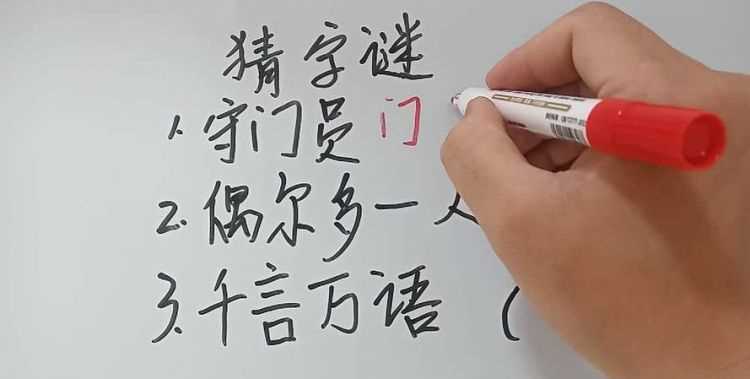 猜字谜
1.守门员 门
2.偶尔多一人
3.千言万语 (